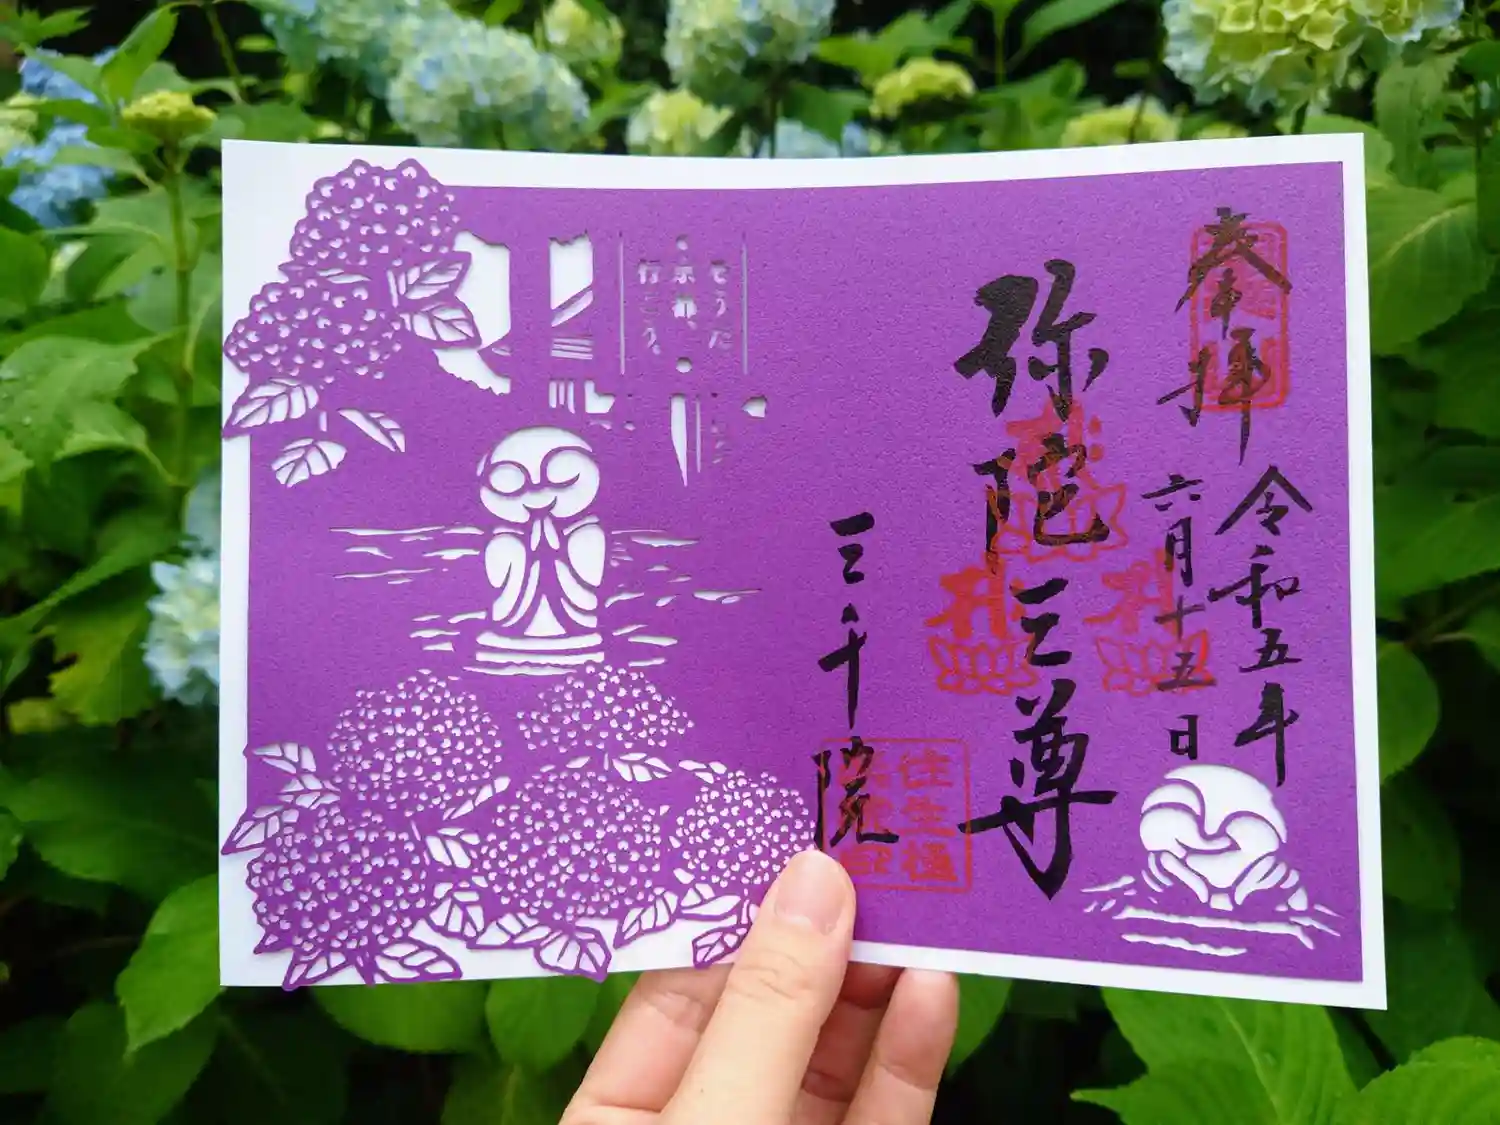 奉拝
令和五年
六月十五日
弥陀三尊
三千院
往生極
そうだ
京都、
行こう。